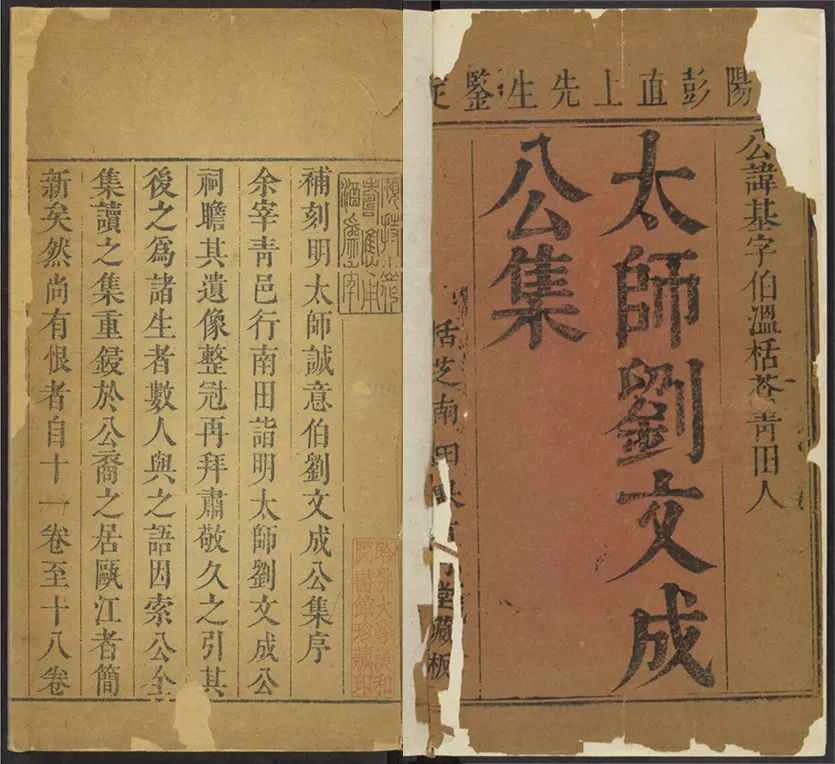 陽彭直上先生鑒定
公諱基字伯溫栝蒼青田人
太師劉文成
公集
栝芝南田 堂藏板
哈佛大學漢和
圖書館珍藏印
補刻明太師誠意伯劉文成公集序
余宰青邑行南田詣明太師劉文成公
祠瞻其遺像整冠再拜肅敬久之引其
後之爲諸生者數人與之語因索公全
集讀之集重鋟於公裔之居甌江者簡
新矣然尚有恨者自十一卷至十八卷